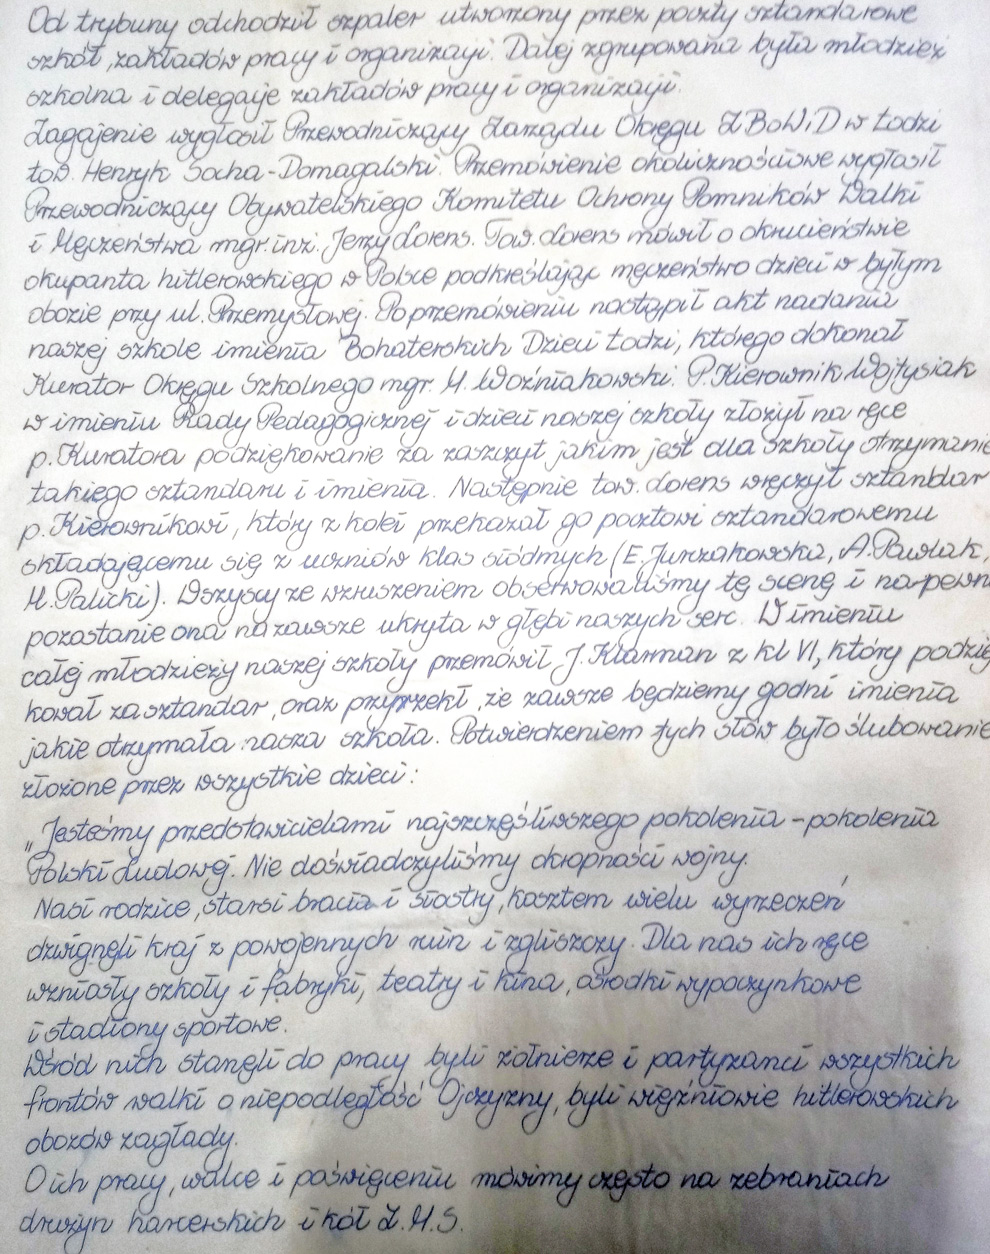 Od trybuny odchodził szpaler utworzony przez poczty sztandarowe
szkół, zakładów pracy i organizacji. Dalej zgrupowana była młodzież
szkolna i delegacje zakładów pracy i organizacji.
Zagajenie wygłosił Przewodniczący Zarządu Okręgu Z.BoW.iD w Łodzi
tow. Henryk Socha-Domagalski. Przemówienie okolicznościowe wygłosił
Przewodniczący Obywatelskiego Komitetu Ochrony Pomników Walki
i Męczeństwa mgr. inż. Jerzy Lorens. Tow. Lorens mówił o okrucieństwie
okupanta hitlerowskiego w Polsce podkreślając męczeństwo dzieci w byłym
obozie przy ul. Przemysłowej. Po przemówieniu nastąpił akt nadania
naszej szkole imienia Bohaterskich Dzieci Łodzi, którego dokonał
Kurator Okręgu Szkolnego mgr. M. Woźniakowski. P. Kierownik Wojtysiak
w imieniu Rady Pedagogicznej i dzieci naszej szkoły złożył na ręce
p. Kuratora podziękowanie za zaszczyt jakim jest dla szkoły otrzymanie
takiego sztandaru i imienia. Następnie tow. Lorens wręczył sztandar
p. Kierownikowi, który z kolei przekazał go pocztowi sztandarowemu
składającemu się z uczniów klas siódmych (E. Jurczakowska, A. Pawlak,
M. Palicki). Wszyscy ze wzruszeniem obserwowaliśmy tę scenę i na pewn
pozostanie ona na zawsze ukryta w głębi naszych serc. W imieniu
całej młodzieży naszej szkoły przemówił J. Klarman z kl VI, który podzię
kował za sztandar, oraz przyrzekł, że zawsze będziemy godni imienia
jakie otrzymała nasza szkoła. Potwierdzeniem tych słów było ślubowanie
złożone przez wszystkie dzieci:
„Jesteśmy przedstawicielami najszczęśliwszego pokolenia - pokolenia
Polski Ludowej. Nie doświadczyliśmy okropności wojny.
Nasi rodzice, starsi bracia i siostry, kosztem wielu wyrzeczeń
dzwignęli kraj z powojennych ruin i zgliszczy. Dla nas ich ręce
wzniosły szkoły i fabryki, teatry i kina, ośrodki wypoczynkowe
i stadiony sportowe.
Wśród nich stanęli do pracy byli żołnierze i partyzanci wszystkich
frontów walki o niepodległość Ojczyzny, byli więźniowie hitlerowskich
obozów zagłady.
O ich pracy, walce i poświęceniu mówimy często na zebraniach
drużyn harcerskich i kół Z.M.S.